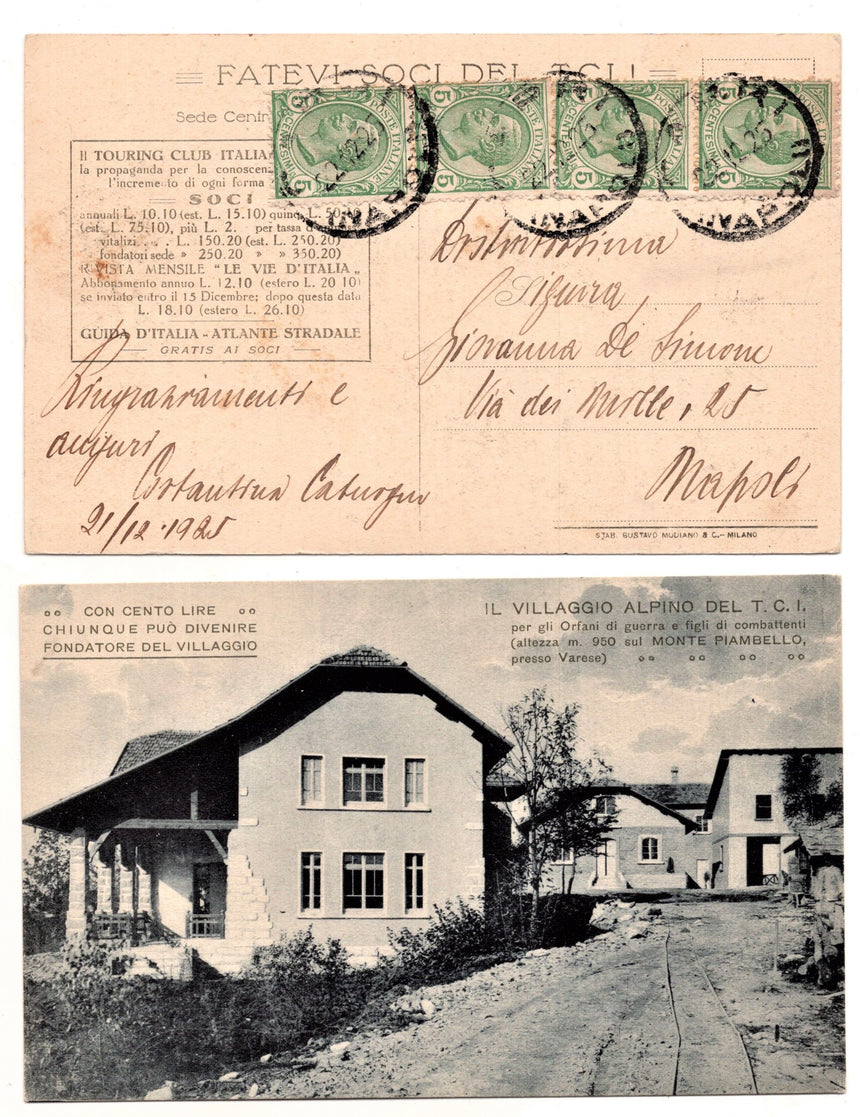 FATEVI SOCI DEL T.C.I.!
Sede Centr
Il TOURING CLUB ITALIA
la propaganda per la conoscen
l'incremento di ogni forma
SOCI
annuali L. 10.10 (est. L. 15.10) quinq. L. 50.10
(est. L. 75.10), più L. 2. per tassa d'
vitalizi . . . L. 150.20 (est. L. 250.20)
fondatori sede » 250.20 » » 350.20)
RIVISTA MENSILE "LE VIE D'ITALIA„
Abbonamento annuo L. 12.10 (estero L. 20 10)
se inviato entro il 15 Dicembre; dopo questa data
L. 18.10 (estero L. 26.10)
GUIDA D'ITALIA - ATLANTE STRADALE
GRATIS AI SOCI
5 CENTESIMI POSTE ITALIANE
5 POSTE ITALIANE
5 CENTESIMI POSTE ITALIANE
5 CENTESIMI POSTE ITALIANE
NAPOLI
22.12.25
Distintissima
Signora
Giovanna De Simone
Via dei Mille, 25
Napoli
Ringraziamenti e
auguri
Costantina
21/12.1925
STAB. GUSTAVO MODIANO & C. - MILANO
CON CENTO LIRE
CHIUNQUE PUÒ DIVENIRE
FONDATORE DEL VILLAGGIO
IL VILLAGGIO ALPINO DEL T. C. I.
per gli Orfani di guerra e figli di combattenti
(altezza m. 950 sul MONTE PIAMBELLO,
presso Varese)